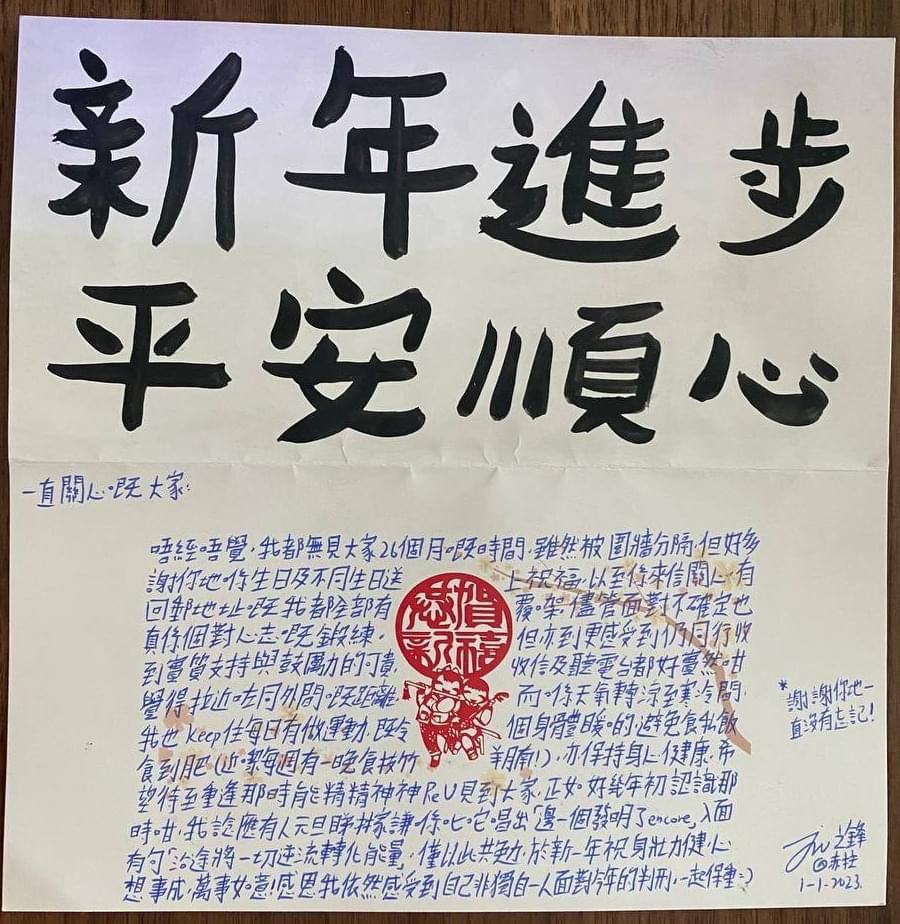 新年進步
平安順心
一直關心嘅大家:
唔經唔覺,我都無見大家26個月嘅時間,雖然被圍牆分隔,但好多
謝你地係生日及不同生日送上祝福,以至係來信關心,有
回郵地址嘅我都全部有覆架.儘管面對不確定也
真係個對心志嘅鍛練,但亦到更感受到仍同行收
到實質支持與鼓勵力的可貴,收信及聽電台都好驚然咁
覺得拉近左同外間嘅距離,而係天氣轉涼至寒冷間,
我也keep住每日有做運動,既令個身體暖的避免食飯
食到肥(近嚟每週有一晚食枝竹羊腩!),亦保持身心健康,希
望待至重逢那時能精精神神ReU見到大家,正如好幾年初認識那
時咁,我諗應有人元旦睇林家謙係叱咤唱出「邊一個發明了encore」,入面
有句「沿途將一切逆流轉化能量」,僅以此共勉,於新一年祝身壯力健心
想事成,萬事如意!感恩我依然感受到自己非獨自一人面對今年的判刑,一起保重:)
恭賀新禧
*謝謝你地一
直沒有忘記!
之鋒
@赤柱
1-1-2023.